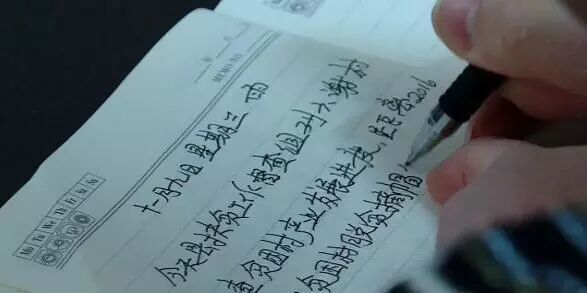 MEMO NO.
Mo Tu We Th Fr Sa Su
十一月九日 星期三 雨
今天是扶贫工作督查组对大谢村
查贫困村产业发展进度,距离2016
贫困村脱贫摘帽